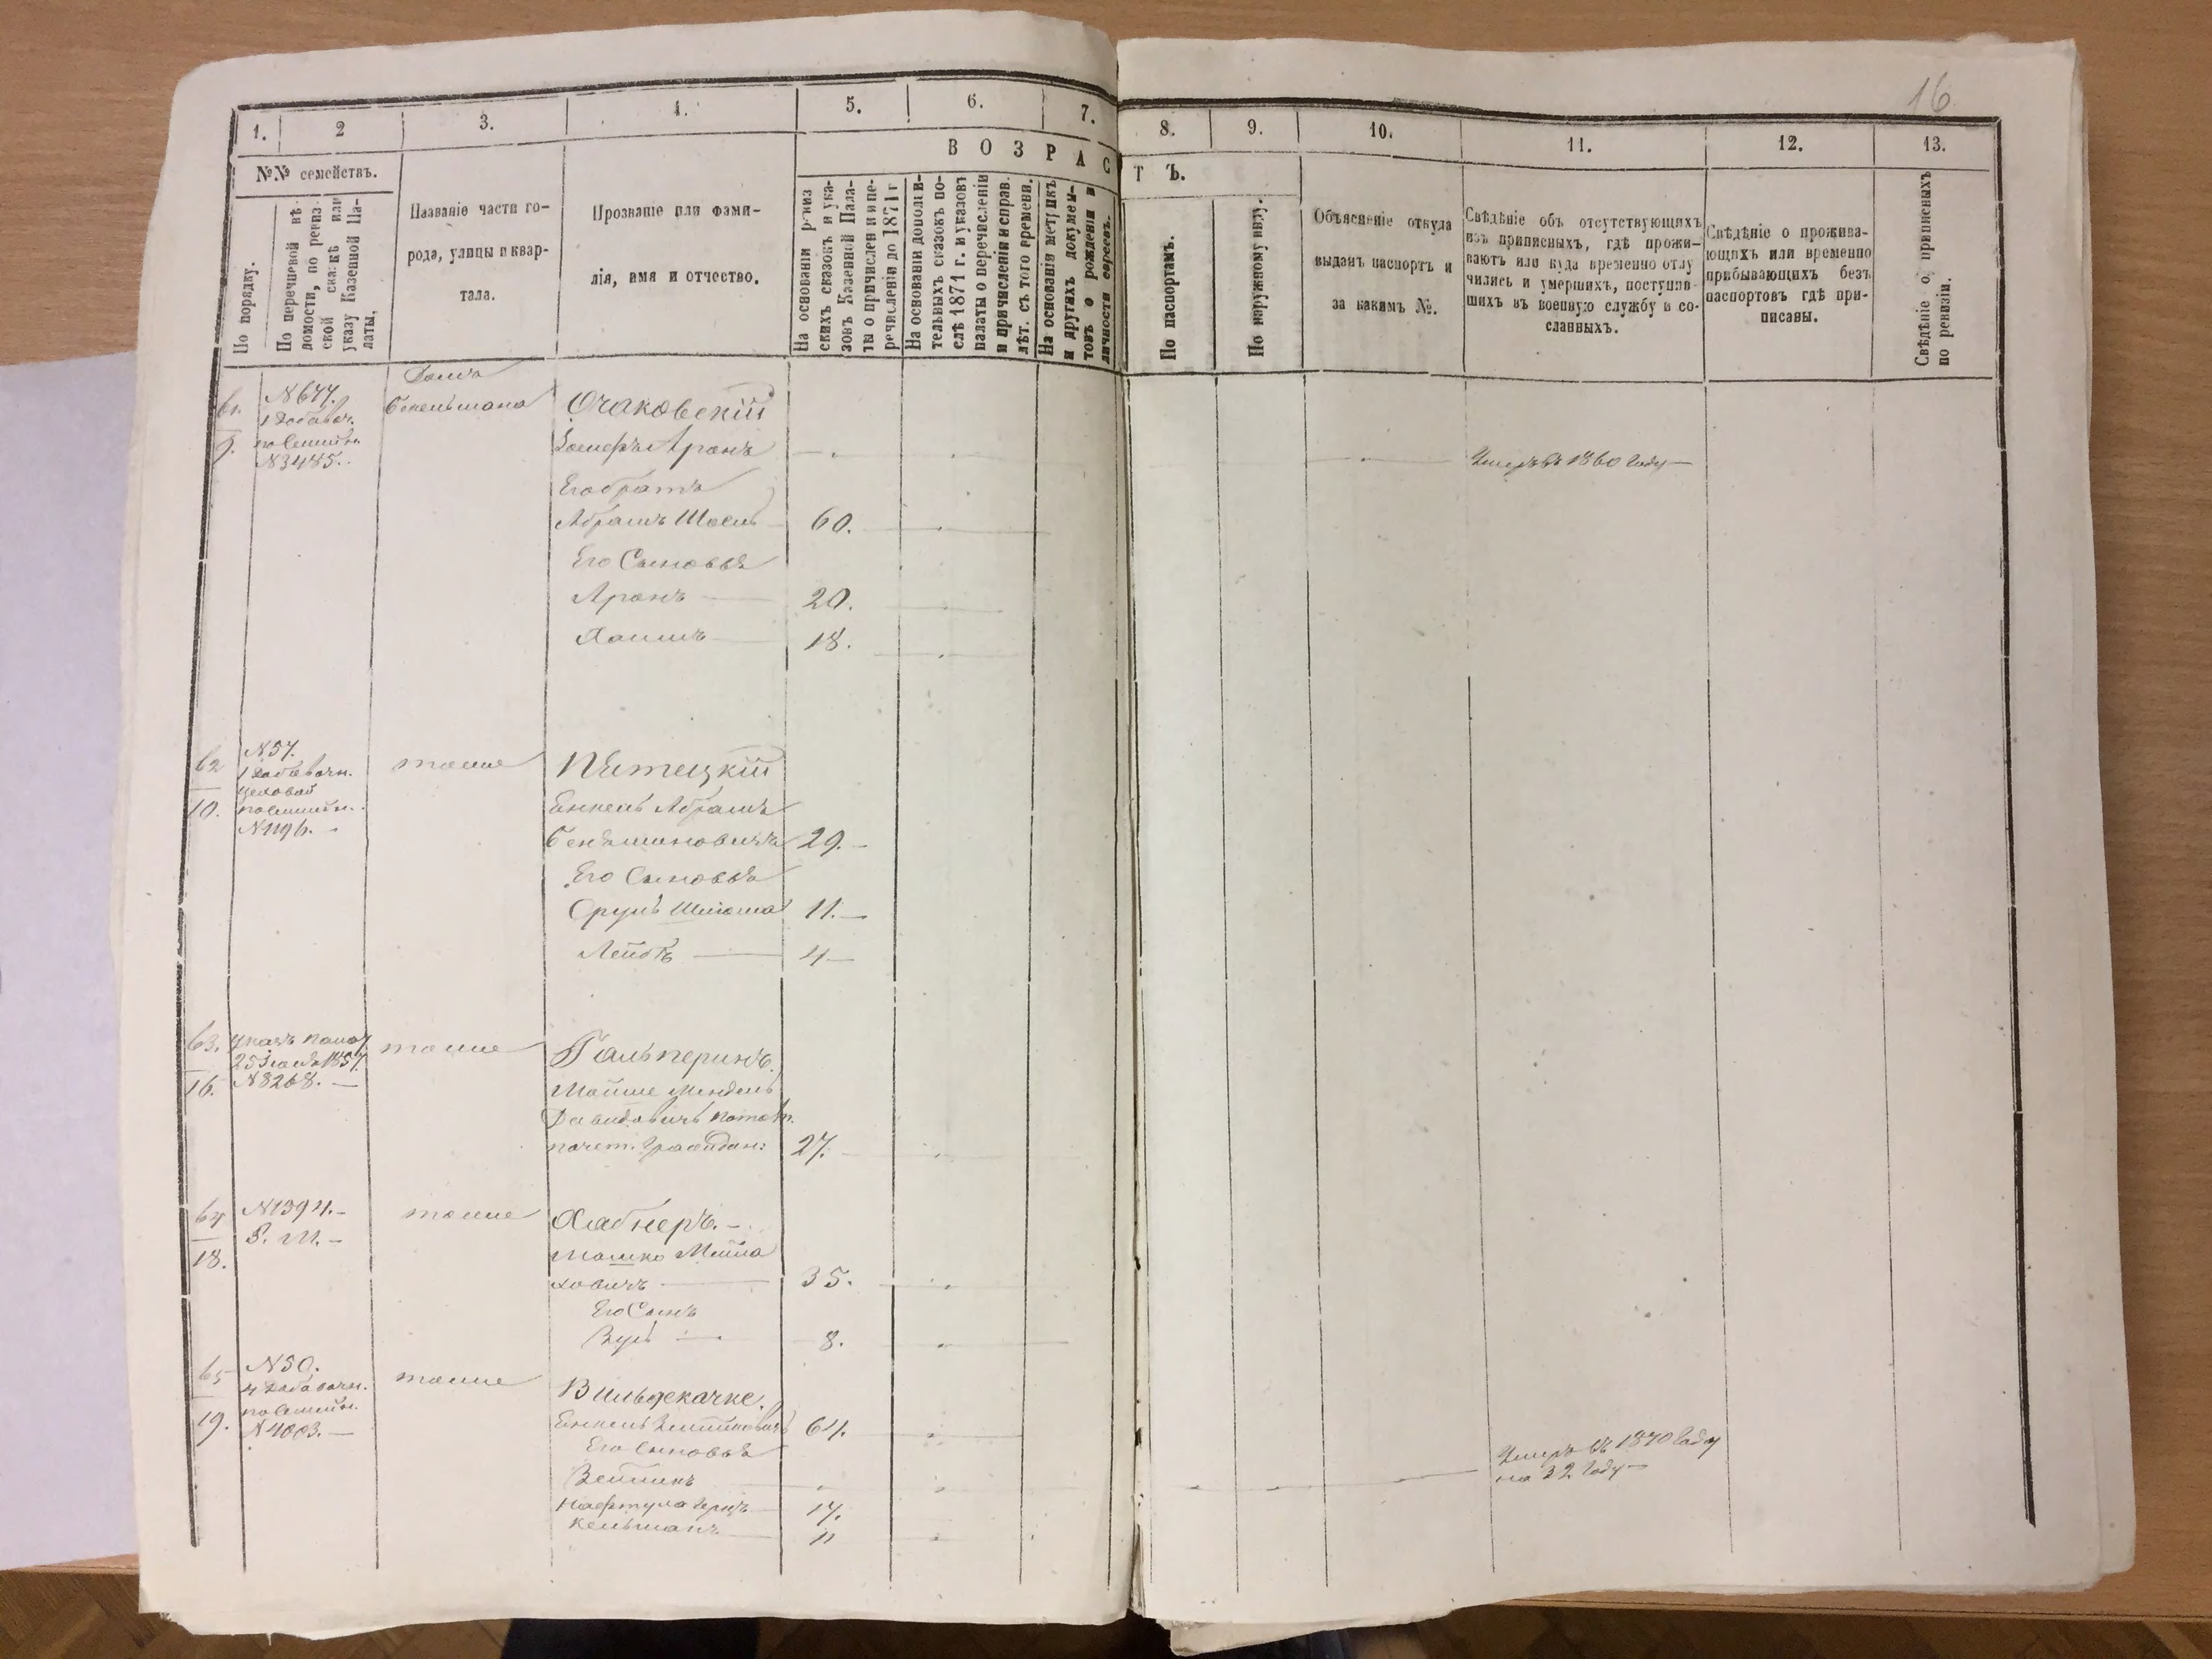 16
1. 2 3. 4. 5. 6. 7. 8. 9. 10. 11. 12. 13.
№№ семействъ.
По порядку.
По перечневой вѣ-
домости, по ревиз-
ской сказкѣ или
указу Казенной Па-
латы.
Названіе части го-
рода, улицы и квар-
тала.
Прозваніе или фами-
лія, имя и отчество.
ВОЗРАСТЪ.
На основаніи ревиз
скихъ сказокъ и ука-
зовъ Казенной Пала-
ты о причислен и и пе-
речисленіи до 1871 г
На основаніи дополни-
тельныхъ сказокъ по-
слѣ 1871 г. и указовъ
палаты о перечисленіи
и причисленіи и справ.
лѣт. съ того времени.
На основаніи метрикъ
и другихъ докумен-
товъ о рожденіи и
личности евреевъ.
По паспортамъ.
По наружному виду.
Объясненіе откуда
выданъ паспортъ и
за какимъ №.
Свѣдѣніе объ отсутствующихъ
изъ приписныхъ, гдѣ прожи-
ваютъ или куда временно отлу
чились и умершихъ, поступив-
шихъ въ военную службу и со-
сланныхъ.
Свѣдѣніе о прожива-
ющихъ или временно
прибывающихъ безъ
паспортовъ гдѣ при-
писаны.
Свѣдѣніе о приписныхъ
по ревизіи.
61. N677. Домъ
9. 1 добавоч. Бекельмана Очаковскій
по Семейн.
N3485. Аронъ — Умеръ въ 1860 году —
Его братъ
Абрамъ 60.
Его Сыновья
Аронъ — 20.
Хаимъ — 18.
62 N57. тоже Пятецкій
1 добавочн.
цеховой
10. по Семейн. Енкель Абрамъ
N1196. — Беняминовичъ 29. —
Его Сыновья
Срулъ 11. —
Лейбъ — 4 —
63. Указъ палат. тоже Гальперинъ.
25 1857.
16. N8268. — Мойше Мендель
Давидовичъ потом.
почет. Граждан: 27. —
64 N1394. — тоже Хабнеръ. —
18. Мошко
ховичъ — 35.
Его Сынъ
8.
65 N50. тоже Вильдекачке.
4 добавочн.
19. по Семейн. Енкель 64.
N4003. — Его Сыновья Умеръ въ 1870 году
на 32 году —
Нафтула Герцъ — 17.
Кельманъ — 11